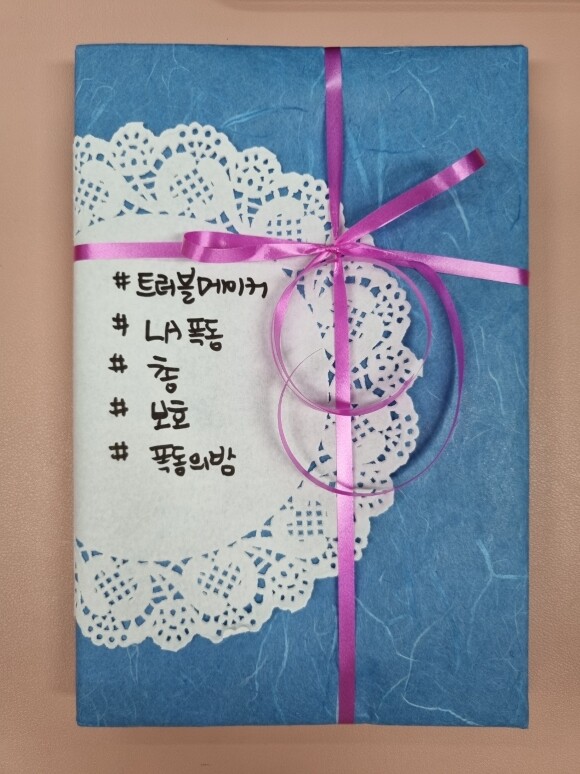 #트러블메이커
# LA폭동
# 총
# 보호
# 폭동의밤